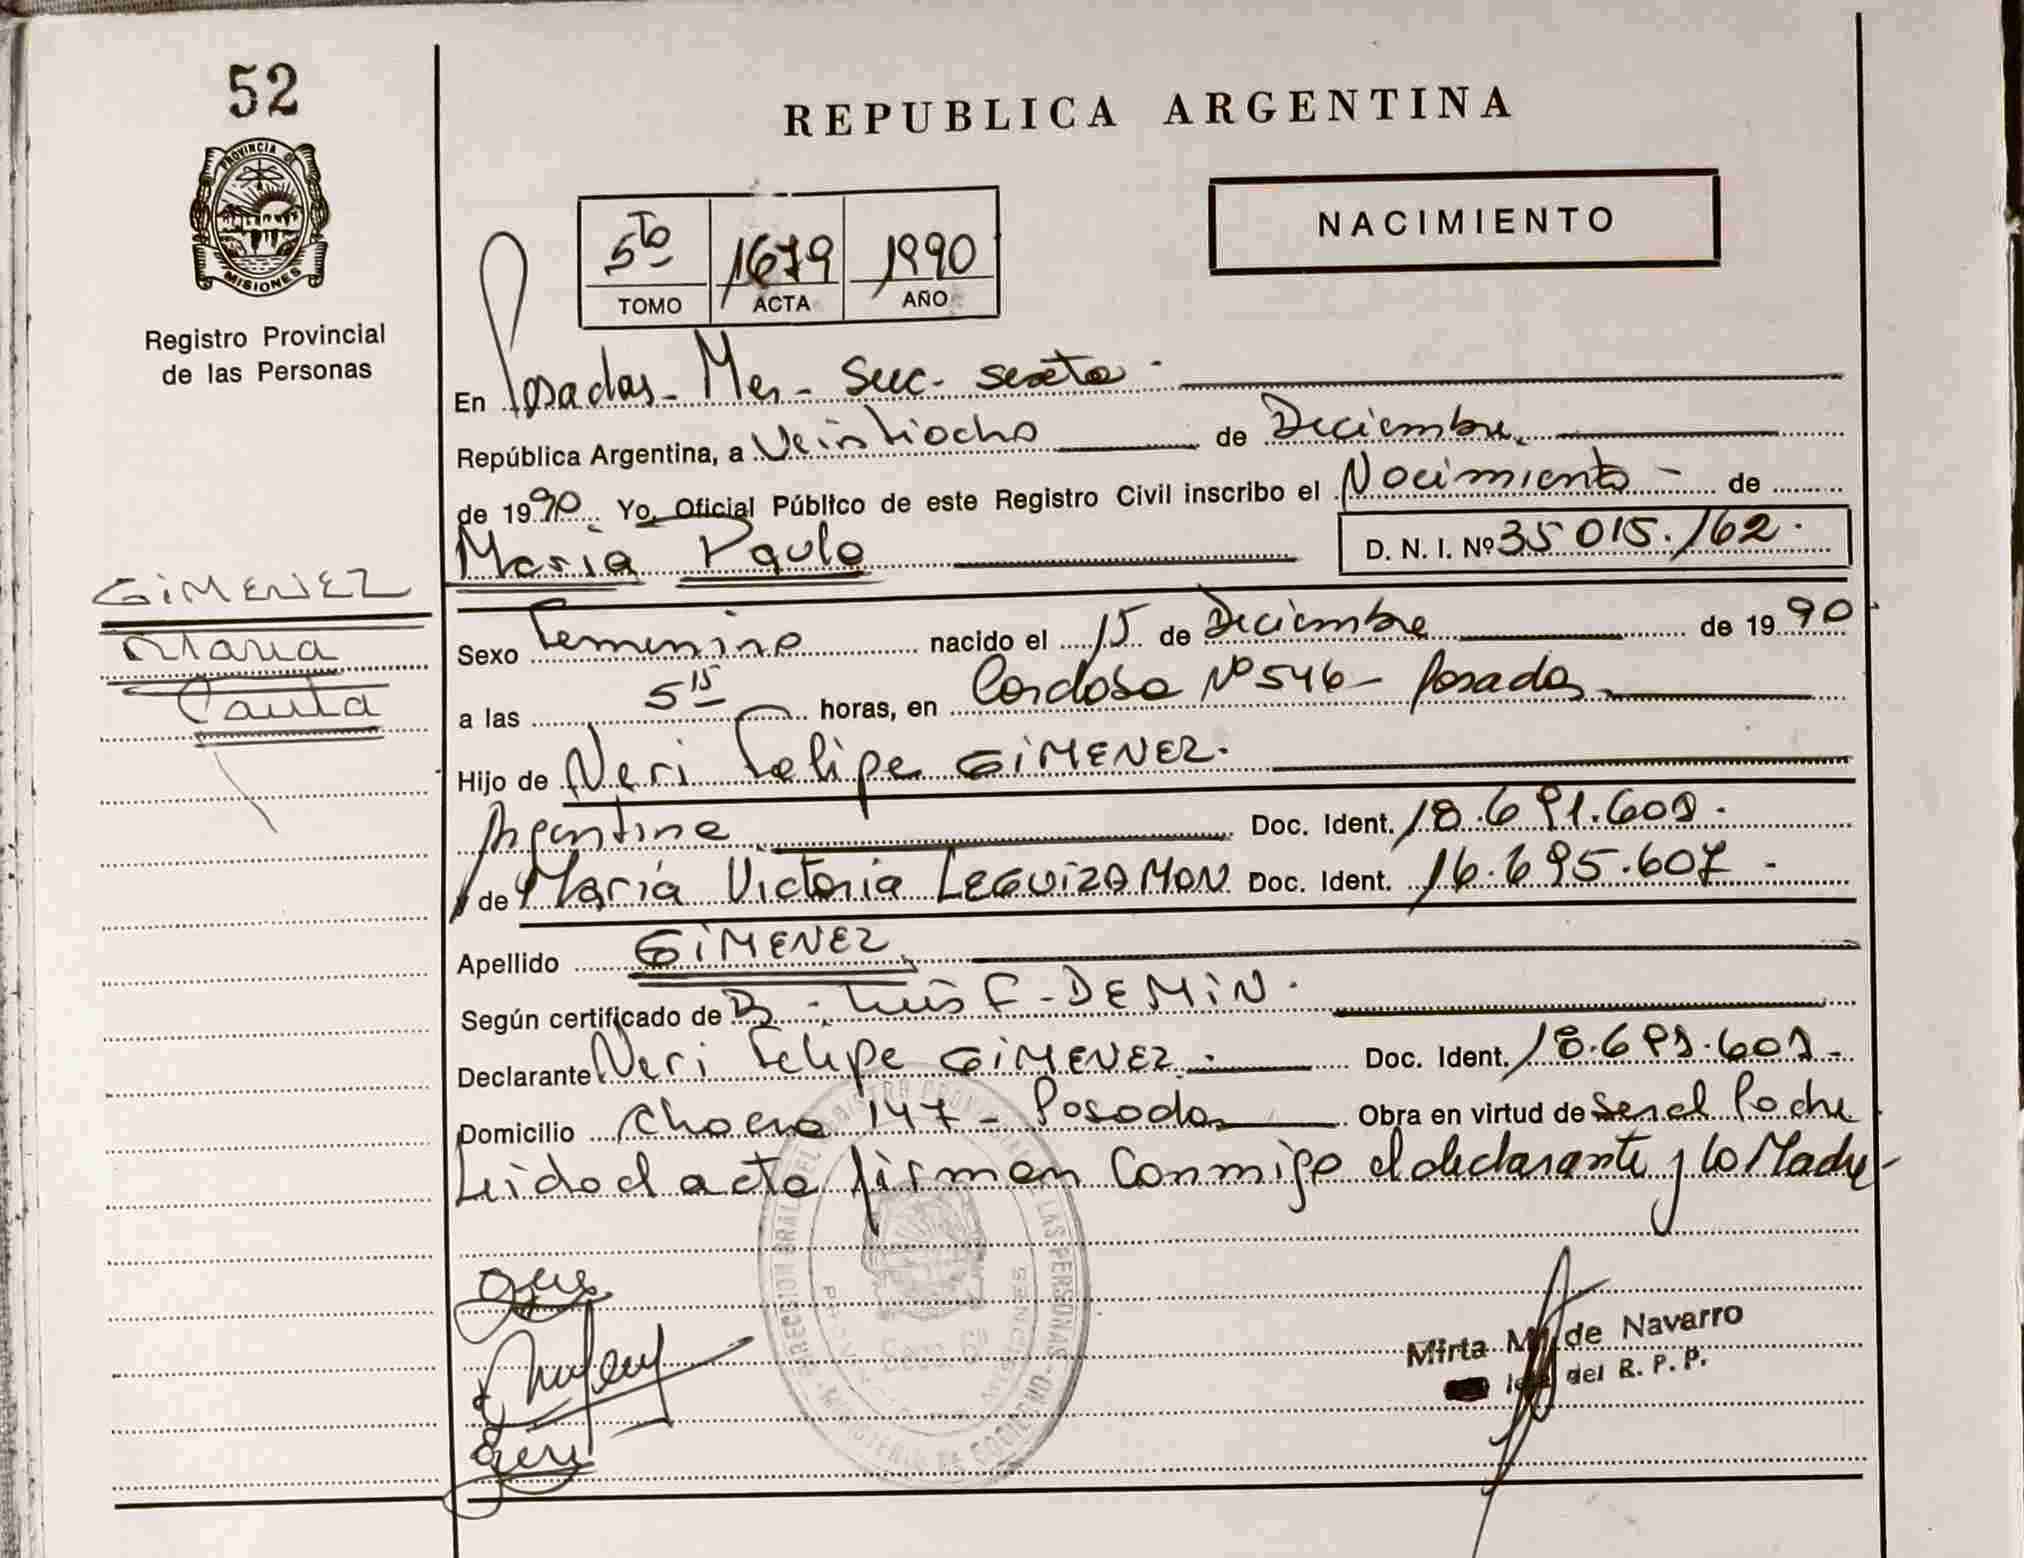 52
PROVINCIA DE
MISIONES
Registro Provincial
de las Personas
GIMENEZ
Maria
Paula
REPUBLICA ARGENTINA
NACIMIENTO
5to 1679 1990
TOMO ACTA AÑO
En Posadas - Mes - Secc. sexta -
República Argentina, a Veintiocho de Diciembre
de 1990. Yo, Oficial Público de este Registro Civil inscribo el Nacimiento - de
Maria Paula D. N. I. Nº 35 015.162.
Sexo Femenino nacido el 15 de Diciembre de 1990
a las 5 15 horas, en Cordoba Nº 546 - Posadas
Hijo de Neri Felipe GIMENEZ.
Argentina Doc. Ident. 18.691.601.
y de María Victoria LEGUIZAMON Doc. Ident. 16.695.607 -
Apellido GIMENEZ
Según certificado de D. Luis F - DEMIN.
Declarante Neri Felipe GIMENEZ. Doc. Ident. 18.691.601 -
Domicilio 147 - Posadas Obra en virtud de ser el Padre
Leido el acta firman conmigo el declarante y la Madre -
Mirta M. de Navarro
del R. P. P.